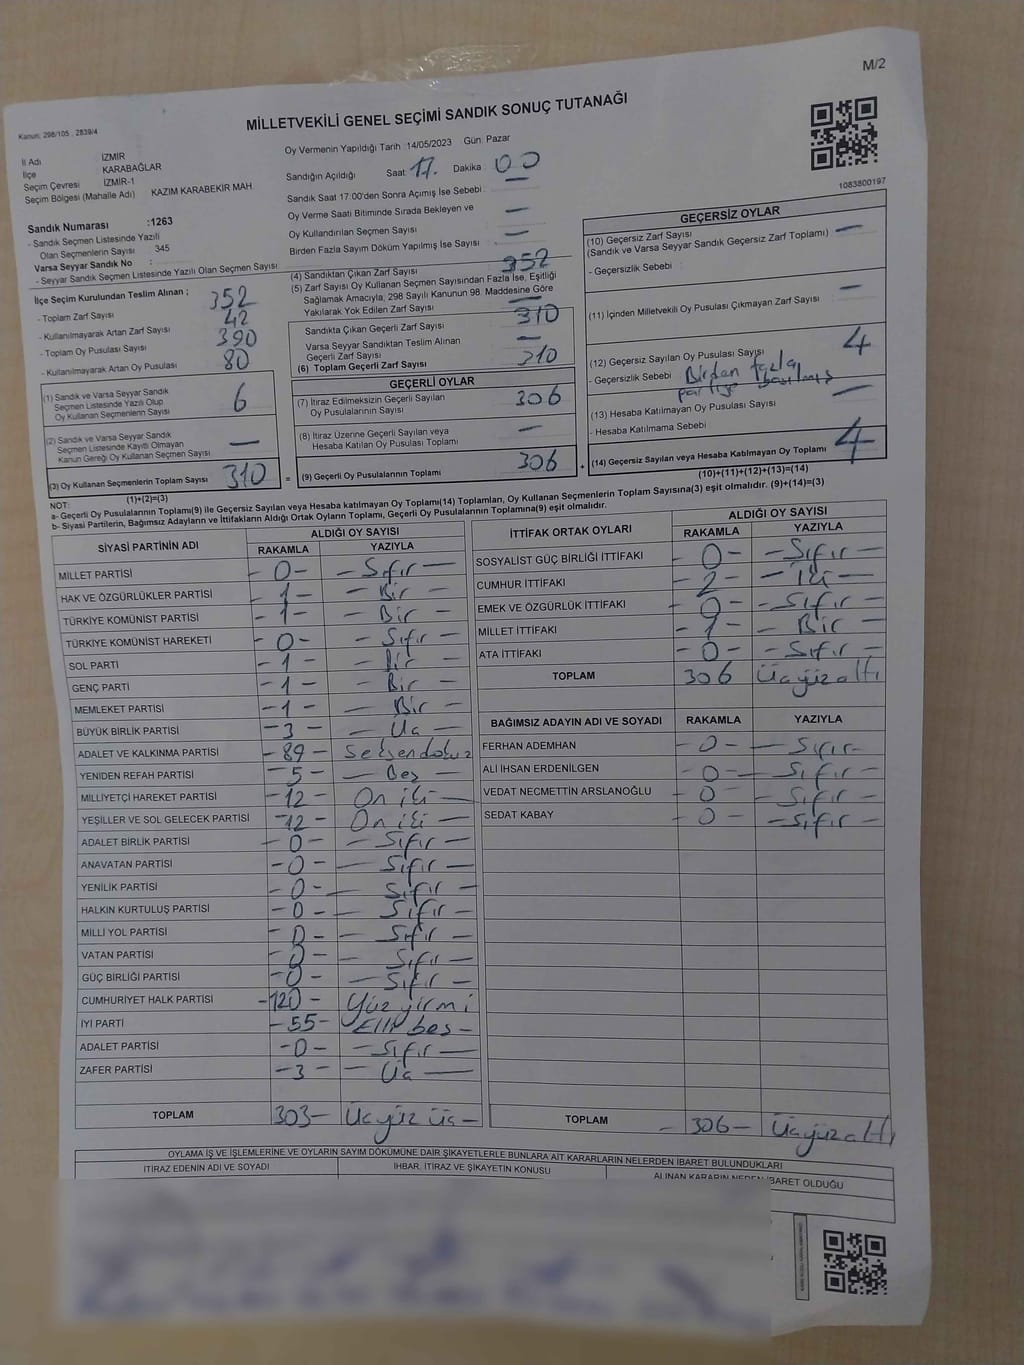 M/2
MİLLETVEKİLİ GENEL SEÇİMİ SANDIK SONUÇ TUTANAĞI
Kanun: 298/105 , 2839/4
İl Adı İZMİR
İlçe KARABAĞLAR
Seçim Çevresi İZMİR-1
Seçim Bölgesi (Mahalle Adı) KAZIM KARABEKİR MAH.
Sandık Numarası :1263
- Sandık Seçmen Listesinde Yazılı
Olan Seçmenlerin Sayısı 345
Varsa Seyyar Sandık No :
- Seyyar Sandık Seçmen Listesinde Yazılı Olan Seçmen Sayısı
İlçe Seçim Kurulundan Teslim Alınan ;
- Toplam Zarf Sayısı 352
- Kullanılmayarak Artan Zarf Sayısı 42
- Toplam Oy Pusulası Sayısı 390
- Kullanılmayarak Artan Oy Pusulası 80
(1) Sandık ve Varsa Seyyar Sandık
Seçmen Listesinde Yazılı Olup
Oy Kullanan Seçmenlerin Sayısı 6
(2) Sandık ve Varsa Seyyar Sandık
Seçmen Listesinde Kayıtlı Olmayan
Kanun Gereği Oy Kullanan Seçmen Sayısı —
(3) Oy Kullanan Seçmenlerin Toplam Sayısı 310
(1)+(2)=(3)
Oy Vermenin Yapıldığı Tarih :14/05/2023 Gün: Pazar
Sandığın Açıldığı Saat 17. Dakika : 00
Sandık Saat 17:00'den Sonra Açımış İse Sebebi : —
Oy Verme Saati Bitiminde Sırada Bekleyen ve
Oy Kullandırılan Seçmen Sayısı —
Birden Fazla Sayım Döküm Yapılmış İse Sayısı : —
(4) Sandıktan Çıkan Zarf Sayısı 352
(5) Zarf Sayısı Oy Kullanan Seçmen Sayısından Fazla İse, Eşitliği
Sağlamak Amacıyla, 298 Sayılı Kanunun 98. Maddesine Göre
Yakılarak Yok Edilen Zarf Sayısı —
Sandıkta Çıkan Geçerli Zarf Sayısı 310
Varsa Seyyar Sandıktan Teslim Alınan
Geçerli Zarf Sayısı —
(6) Toplam Geçerli Zarf Sayısı 310
GEÇERLİ OYLAR
(7) İtiraz Edilmeksizin Geçerli Sayılan
Oy Pusulalarının Sayısı 306
(8) İtiraz Üzerine Geçerli Sayılan veya
Hesaba Katılan Oy Pusulası Toplamı —
= (9) Geçerli Oy Pusulalarının Toplamı 306 +
1083800197
GEÇERSİZ OYLAR
(10) Geçersiz Zarf Sayısı
(Sandık ve Varsa Seyyar Sandık Geçersiz Zarf Toplamı) —
- Geçersizlik Sebebi :
(11) İçinden Milletvekili Oy Pusulası Çıkmayan Zarf Sayısı —
(12) Geçersiz Sayılan Oy Pusulası Sayısı 4
- Geçersizlik Sebebi Birden fazla
partiye basılmış
(13) Hesaba Katılmayan Oy Pusulası Sayısı —
- Hesaba Katılmama Sebebi
(14) Geçersiz Sayılan veya Hesaba Katılmayan Oy Toplamı 4
(10)+(11)+(12)+(13)=(14)
NOT:
a- Geçerli Oy Pusulalarının Toplamı(9) ile Geçersiz Sayılan veya Hesaba katılmayan Oy Toplamı(14) Toplamları, Oy Kullanan Seçmenlerin Toplam Sayısına(3) eşit olmalıdır. (9)+(14)=(3)
b- Siyasi Partilerin, Bağımsız Adayların ve İttifakların Aldığı Ortak Oyların Toplamı, Geçerli Oy Pusulalarının Toplamına(9) eşit olmalıdır.
SİYASİ PARTİNİN ADI ALDIĞI OY SAYISI
RAKAMLA YAZIYLA
MİLLET PARTİSİ -0- -Sıfır-
HAK VE ÖZGÜRLÜKLER PARTİSİ -1- -Bir-
TÜRKİYE KOMÜNİST PARTİSİ -1- -Bir-
TÜRKİYE KOMÜNİST HAREKETİ -0- -Sıfır-
SOL PARTİ -1- -Bir-
GENÇ PARTİ -1- -Bir-
MEMLEKET PARTİSİ -1- -Bir-
BÜYÜK BİRLİK PARTİSİ -3- -Üç-
ADALET VE KALKINMA PARTİSİ -89- Seksendokuz
YENİDEN REFAH PARTİSİ -5- -Beş-
MİLLİYETÇİ HAREKET PARTİSİ -12- On iki-
YEŞİLLER VE SOL GELECEK PARTİSİ -12- On iki-
ADALET BİRLİK PARTİSİ -0- -Sıfır-
ANAVATAN PARTİSİ -0- -Sıfır-
YENİLİK PARTİSİ -0- -Sıfır-
HALKIN KURTULUŞ PARTİSİ -0- -Sıfır-
MİLLİ YOL PARTİSİ -0- -Sıfır-
VATAN PARTİSİ -0- -Sıfır-
GÜÇ BİRLİĞİ PARTİSİ -0- -Sıfır-
CUMHURİYET HALK PARTİSİ -120- Yüz yirmi
İYİ PARTİ -55- Elli beş-
ADALET PARTİSİ -0- -Sıfır-
ZAFER PARTİSİ -3- -Üç-
TOPLAM 303- Üçyüz üç-
İTTİFAK ORTAK OYLARI ALDIĞI OY SAYISI
RAKAMLA YAZIYLA
SOSYALİST GÜÇ BİRLİĞİ İTTİFAKI -0- -Sıfır-
CUMHUR İTTİFAKI -2- -İki-
EMEK VE ÖZGÜRLÜK İTTİFAKI -0- -Sıfır-
MİLLET İTTİFAKI -1- -Bir-
ATA İTTİFAKI -0- -Sıfır-
TOPLAM 306 Üçyüz altı
BAĞIMSIZ ADAYIN ADI VE SOYADI RAKAMLA YAZIYLA
FERHAN ADEMHAN -0- -Sıfır-
ALİ İHSAN ERDENİLGEN -0- -Sıfır-
VEDAT NECMETTİN ARSLANOĞLU -0- -Sıfır-
SEDAT KABAY -0- -Sıfır-
TOPLAM -306- Üçyüz altı
OYLAMA İŞ VE İŞLEMLERİNE VE OYLARIN SAYIM DÖKÜMÜNE DAİR ŞİKAYETLERLE BUNLARA AİT KARARLARIN NELERDEN İBARET BULUNDUKLARI
İTİRAZ EDENİN ADI VE SOYADI İHBAR, İTİRAZ VE ŞİKAYETİN KONUSU ALINAN KARARIN NEDEN İBARET OLDUĞU